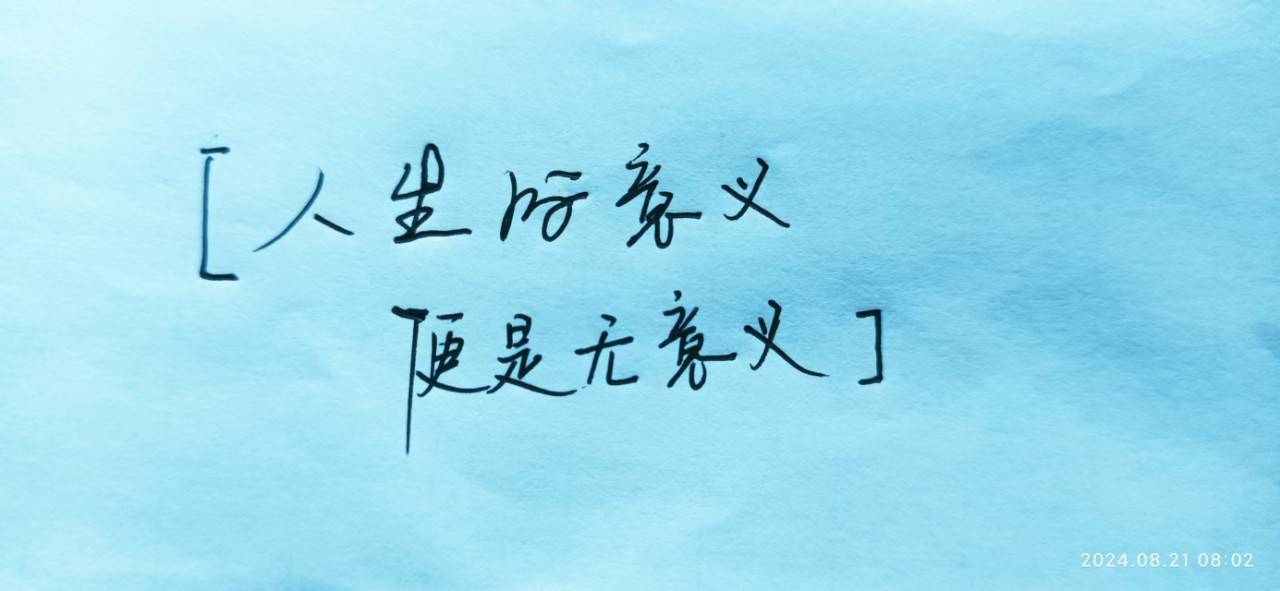 [人生的意义
便是无意义]
2024.08.21 08:02